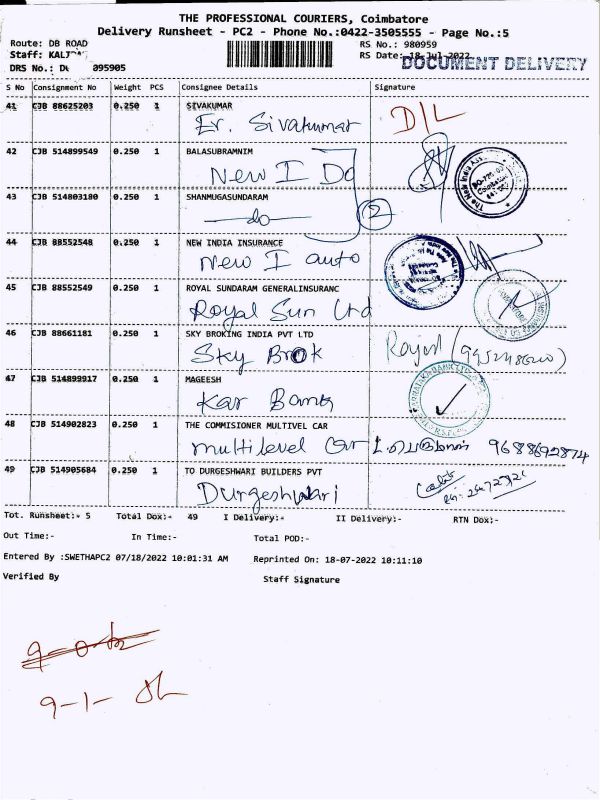 THE PROFESSIONAL COURIERS, Coimbatore
Delivery Runsheet - PC2 - Phone No.:0422-3505555 - Page No.:5
Route: DB ROAD
RS No.: 980959
RS Date: 18-Jul-2022
DOCUMENT DELIVERY
DRS No.: 095905
S No Consignment No Weight PCS Consignee Details Signature
41 CJB 88625203 0.250 1 SIVAKUMAR
Er. Sivakumar D/L
42 CJB 514899549 0.250 1 BALASUBRAMNIM
New I
43 CJB 514803180 0.250 1 SHANMUGASUNDARAM
do 2
44 CJB 88552548 0.250 1 NEW INDIA INSURANCE
New I auto
45 CJB 88552549 0.250 1 ROYAL SUNDARAM GENERALINSURANC
Royal Sun Ltd
46 CJB 88661181 0.250 1 SKY BROKING INDIA PVT LTD
Sky Brok
47 CJB 514899917 0.250 1 MAGEESH
Kar Bank
48 CJB 514902823 0.250 1 THE COMMISIONER MULTIVEL CAR
multilevel Car 9688692874
49 CJB 514905684 0.250 1 TO DURGESHWARI BUILDERS PVT
Durgeshwari
Tot. Runsheet:- 5 Total Dox:- 49 I Delivery:- II Delivery:- RTN Dox:-
Out Time:- In Time:- Total POD:-
Entered By :SWETHAPC2 07/18/2022 10:01:31 AM Reprinted On: 18-07-2022 10:11:10
Verified By Staff Signature
9-1-